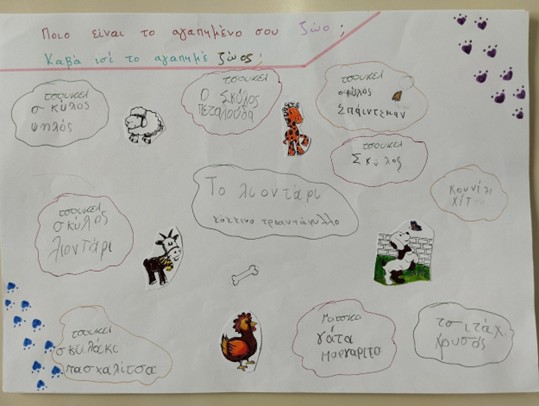 Ποιο είναι το αγαπημένο σου ζώο;
Καβά ισί το αγαπημέ ζώος;
τσουκελ
σκύλος
ψηλός
τσουκελ
Ο Σκύλος
πεταλούδα
τσουκελ
σκύλος
Σπάιντερμαν
τσουκελ
Σκύλος
Το λιοντάρι
κόκκινο τριαντάφυλλο
κουνέλι
χιτ
τσουκελ
σκύλος
λιοντάρι
τσουκελ
σκυλάκι
πασχαλίτσα
Μάτσκα
γάτα
Μαργαρίτα
τσιτάχ
χρυσός